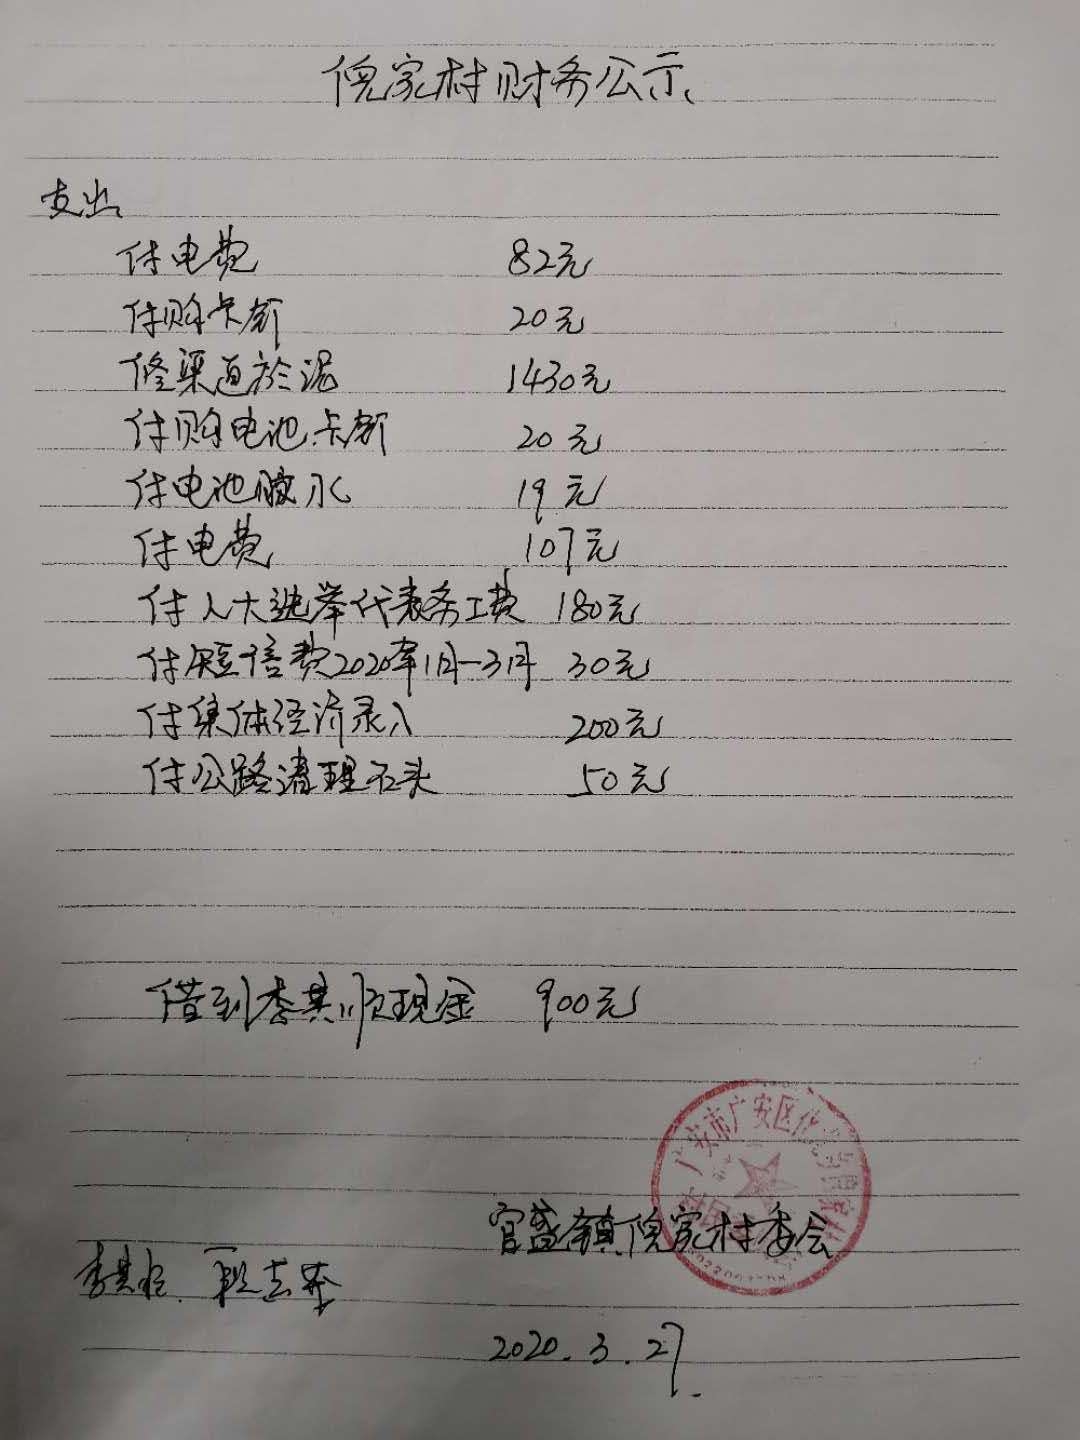 倪家村财务公示
支出
付电费 82元
付购卡部 20元
修渠道於泥 1430元
付购电池卡部 20元
付电池胶水 19元
付电费 107元
付人大选举代表务工费 180元
付短信费2020年1月-3月 30元
付集体经济录入 200元
付公路清理石头 50元
借到李其顺现金 900元
广安市广安区
官盛镇倪家村委会
李其
2020.3.27.